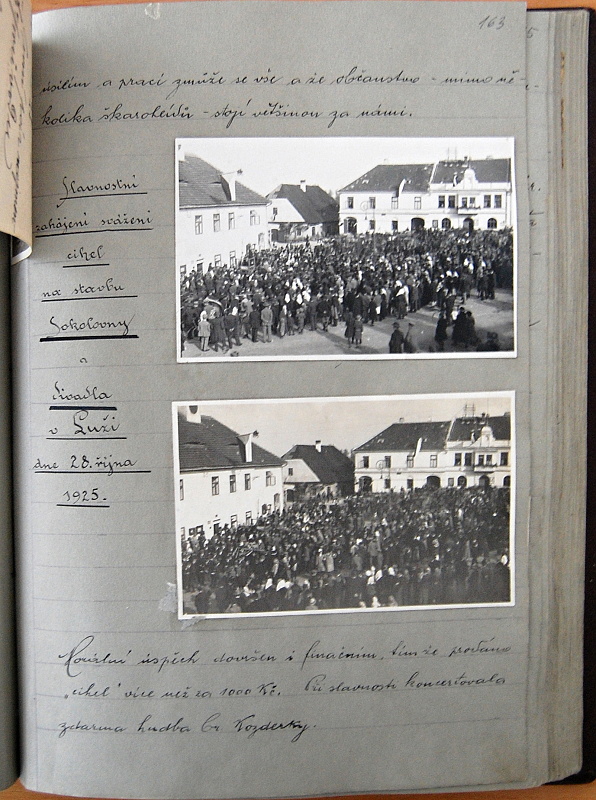 163
úsilím a prací zmůže se vše a že občanstvo - mimo ně-
kolika škarohlídů - stojí většinou za námi.
Slavnostní
zahájení svážení
cihel
na stavbu
Sokolovny
a
divadla
v Luži
dne 28. října
1925.
Morální úspěch dovršen i finačním, tím že prodáno
"cihel" více než za 1000 Kč. Při slavnosti koncertovala
zdarma hudba br. Kozderky.